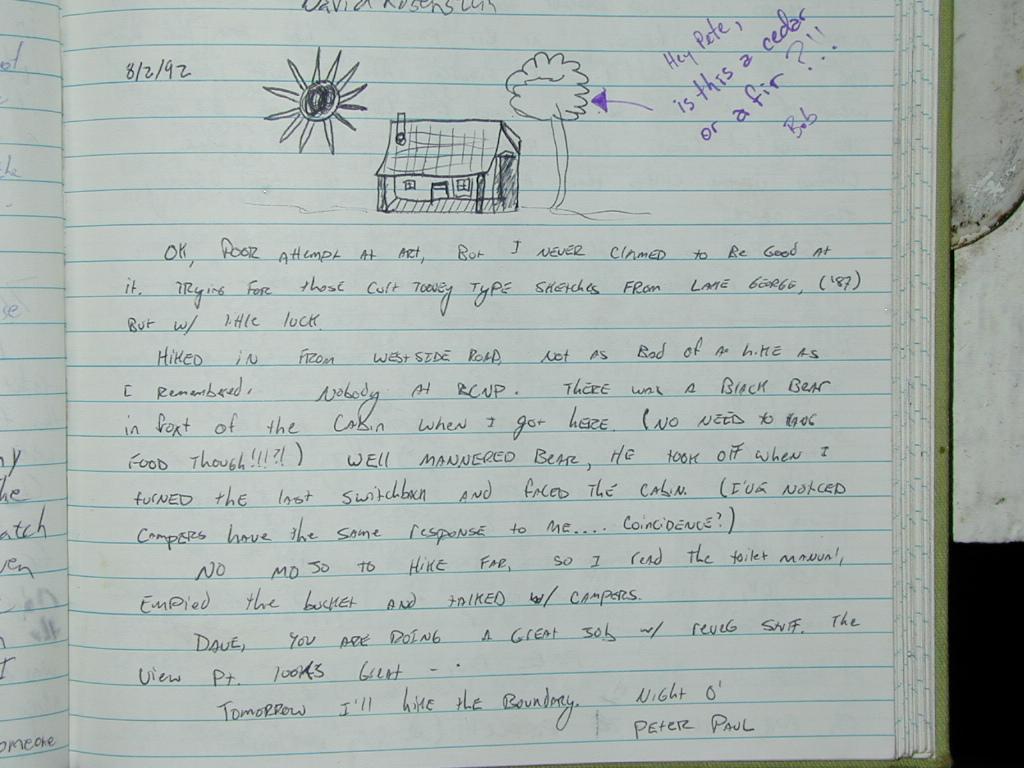 David Rosenstein
8/2/92
Hey Pete,
is this a cedar
or a fir ?!!
Bob
OK, Poor Attempt At Art, But I NEVER Claimed to Be Good At
it. Trying For those Cult Type Sketches From LAKE GEORGE, ('87)
But w/ little luck.
HIKED IN From WESTSIDE ROAD, Not As Bad of A hike As
I Remembered. Nobody At BCNP. THERE was A Black Bear
in front of the CABIN when I got here. (NO NEED to
FOOD Though!!!?!) WELL MANNERED BEAR, HE took off when I
turned the last Switchback AND FACED THE CABIN. (I'VE NOTICED
CAMPERS have the same response to me.... Coincidence?)
NO MOJO to HIKE FAR, so I read the toilet MANUAL,
Emptied the bucket AND talked w/ CAMPERS.
DAVE, YOU ARE DOING A GREAT Job w/ reveg Stuff. The
View Pt. looks Great - .
Tomorrow I'll hike the Boundary. Night O'
PETER PAUL
ny
he
atch
ven
n
I
omeone